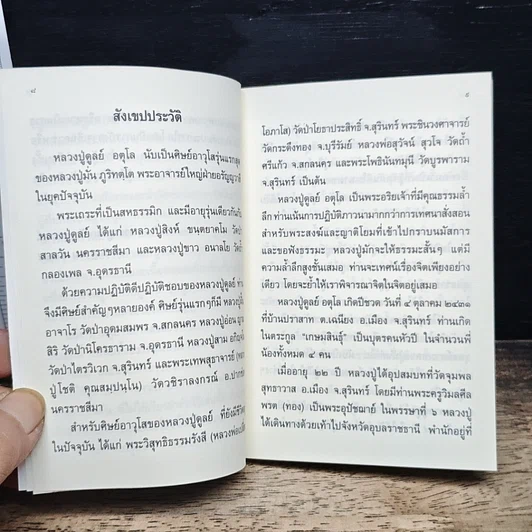 ๘
สังเขปประวัติ
หลวงปู่ดูลย์ อตุโล นับเป็นศิษย์อาวุโสรุ่นแรกสุด
ของหลวงปู่มั่น ภูริทตฺโต พระอาจารย์ใหญ่ฝ่ายอรัญญวาสี
ในยุคปัจจุบัน
พระเถระที่เป็นสหธรรมิก และมีอายุรุ่นเดียวกันกับ
หลวงปู่ดูลย์ ได้แก่ หลวงปู่สิงห์ ขนฺตยาคโม วัดป่า
สาลวัน นครราชสีมา และหลวงปู่ขาว อนาลโย วัดถ้ำ
กลองเพล จ.อุดรธานี
ด้วยความปฏิบัติดีปฏิบัติชอบของหลวงปู่ดูลย์ ท่าน
จึงมีศิษย์สำคัญๆหลายองค์ ศิษย์รุ่นแรกๆก็มี หลวงปู่ฝั้น
อาจาโร วัดป่าอุดมสมพร จ.สกลนคร หลวงปู่อ่อน
สิริ วัดป่านิโครธาราม จ.อุดรธานี หลวงปู่สาม
วัดป่าไตรวิเวก จ.สุรินทร์ และพระเทพสุธาจารย์
ปู่โชติ คุณสมฺปนฺโน) วัดวชิราลงกรณ์ อ.ปากช่อง
นครราชสีมา
สำหรับศิษย์อาวุโสของหลวงปู่ดูลย์ ที่ยังมีชีวิต
ในปัจจุบัน ได้แก่ พระวิสุทธิธรรมรังสี (หลวงพ่อเปลี่ยน
๙
โอภาโส) วัดป่าโยธาประสิทธิ์ จ.สุรินทร์ พระชินวงศาจารย์
วัดกระดึงทอง จ.บุรีรัมย์ หลวงพ่อสุวัจน์ สุวโจ วัดถ้ำ
ศรีแก้ว จ.สกลนคร และพระโพธินันทมุนี วัดบูรพาราม
จ.สุรินทร์ เป็นต้น
หลวงปู่ดูลย์ อตุโล เป็นพระอริยเจ้าที่มีคุณธรรมล้ำ
ลึก ท่านเน้นการปฏิบัติภาวนามากกว่าการเทศนาสั่งสอน
สำหรับพระสงฆ์และญาติโยมที่เข้าไปกราบนมัสการ
และขอฟังธรรมะ หลวงปู่มักจะให้ธรรมะสั้นๆ แต่มี
ความล้ำลึกสูงชั้นเสมอ ท่านจะเทศน์เรื่องจิตเพียงอย่าง
เดียว โดยจะย้ำให้เราพิจารณาจิตในจิตอยู่เสมอ
หลวงปู่ดูลย์ อตุโล เกิดปีชวด วันที่ ๔ ตุลาคม ๒๔๓๑
ที่บ้านปราสาท ต.เฉนียง อ.เมือง จ.สุรินทร์ ท่านเกิด
ในตระกูล "เกษมสินธุ์" เป็นบุตรคนหัวปี ในจำนวนพี่
น้องทั้งหมด ๕ คน
เมื่ออายุ ๒๒ ปี หลวงปู่ได้อุปสมบทที่วัดจุมพล
สุทธาวาส อ.เมือง จ.สุรินทร์ โดยมีท่านพระครูวิมลศีล
พรต (ทอง) เป็นพระอุปัชฌาย์ ในพรรษาที่ ๖ หลวงปู่
ได้เดินทางด้วยเท้าไปจังหวัดอุบลราชธานี พำนักอยู่ที่